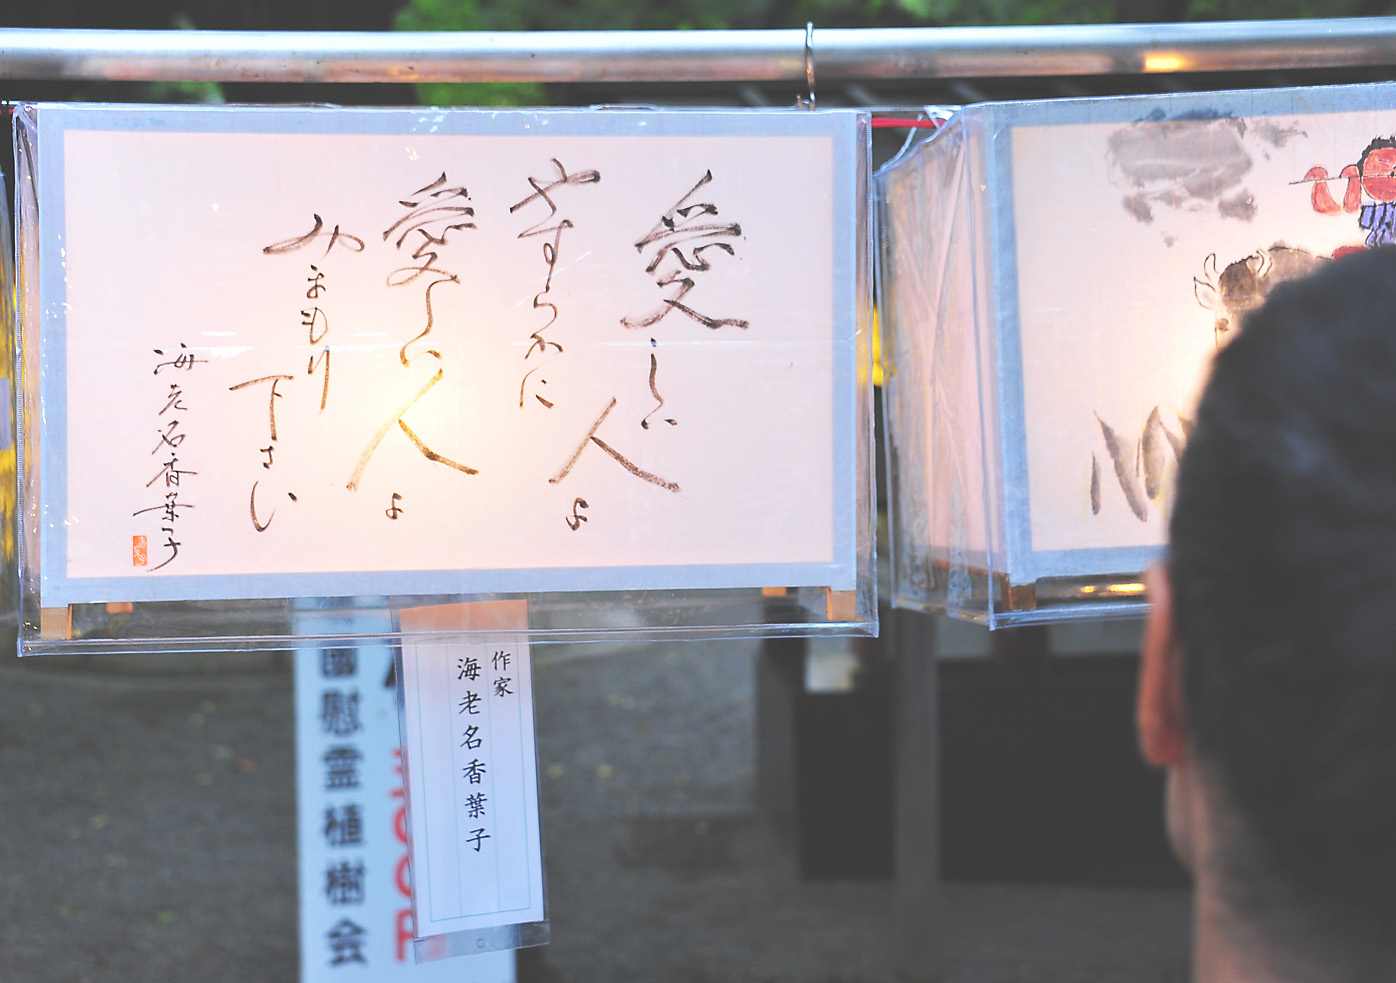 愛しい
人よ
やすらかに
愛しい人よ
みまもり
下さい
海老名香葉子
作家
海老名香葉子
國慰霊植樹会